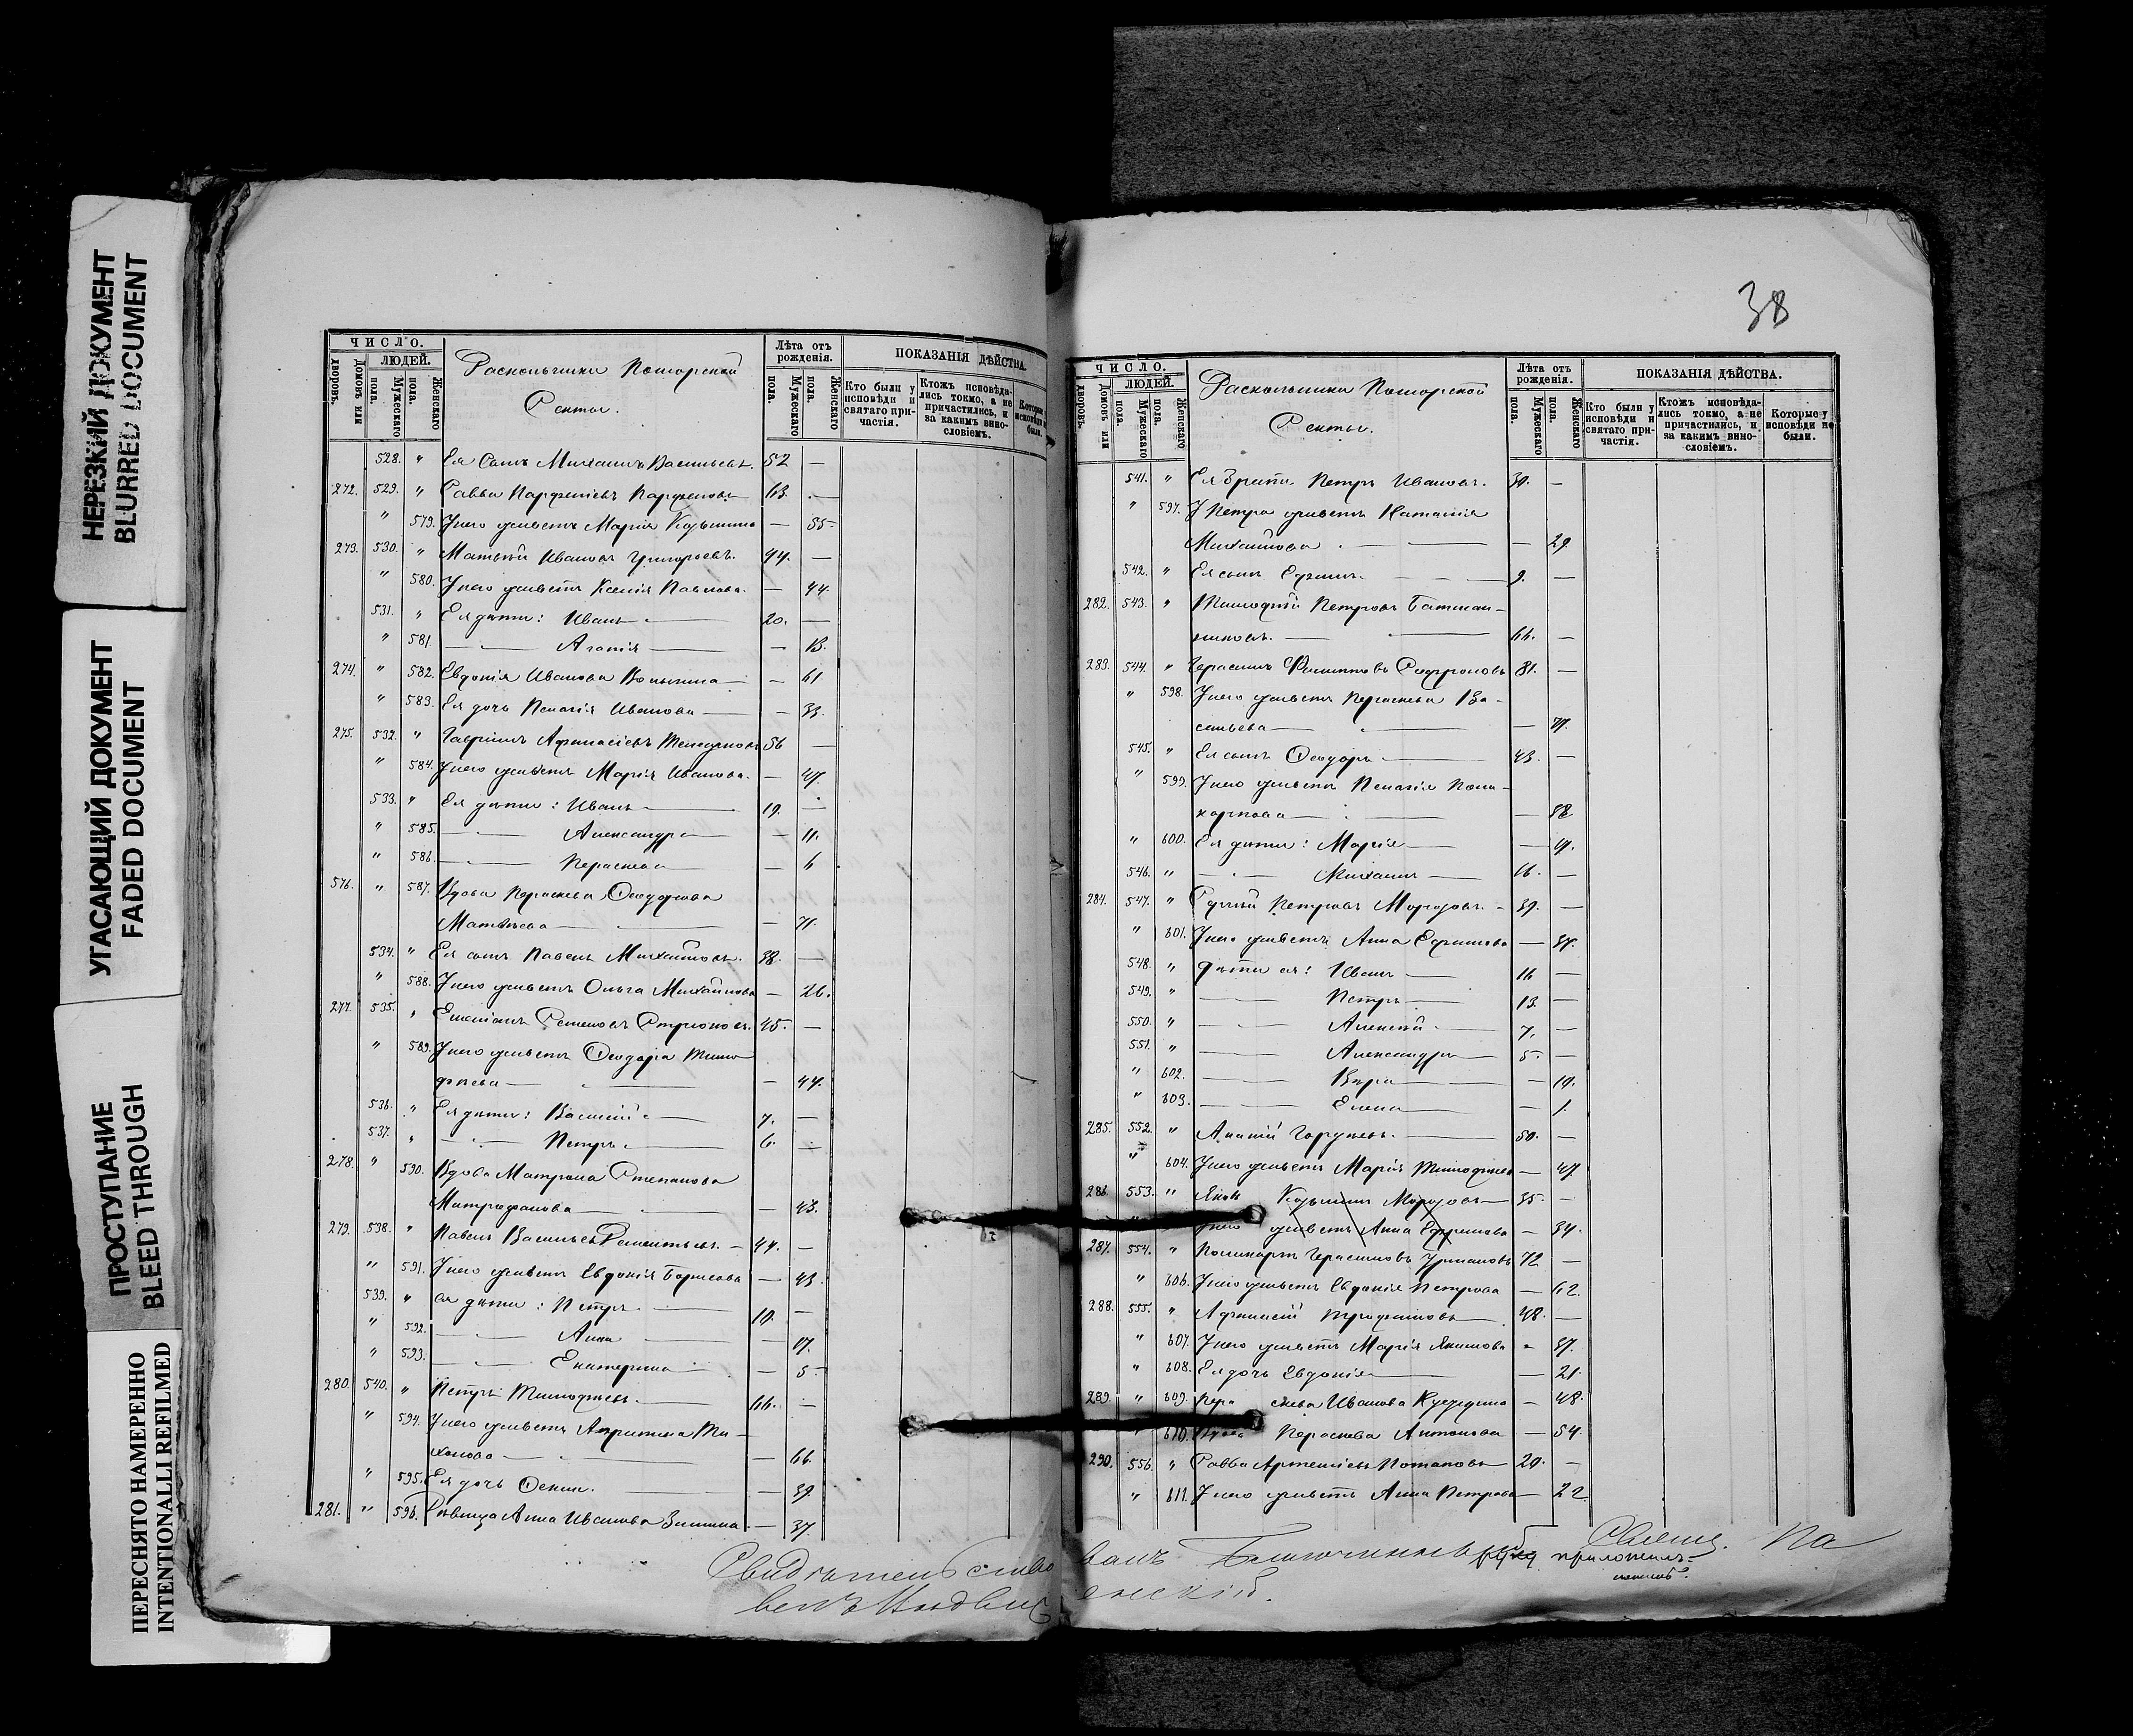 НЕРЕЗКИЙ ДОКУМЕНТ
BLURRED DOCUMENT
УГАСАЮЩИЙ ДОКУМЕНТ
FADED DOCUMENT
ПРОСТУПАНИЕ
BLEED THROUGH
ПЕРЕСНЯТО НАМЕРЕННО
INTENTIONALLI REFILMED
ЧИСЛО.
ЛЮДЕЙ.
Домовъ или дворовъ.
Мужескаго пола.
Женскаго пола.
Раскольники Поморской
Секты.
Лѣта отъ рожденія.
Мужескаго пола.
Женскаго пола.
ПОКАЗАНІЯ ДѢЙСТВА.
Кто были у исповѣди и святаго причастія.
Ктожъ исповѣдались токмо, а не причастились, и за какимъ винословіемъ.
528. " Ея сынъ Михаилъ Васильевъ. 52 —
272. 529. " Савва Парѳеніевъ Парѳеновъ 63. —
" 579. У него жена Марія Кузьмина — 55
273. 530. " Матвѣй Ивановъ Григорьевъ. 44. —
" 580. У него Ксенія Павлова. — 44.
531. " Ея дѣти: Иванъ 20. —
" 581. — Агапія — 13.
274. " 582. Евдокія Иванова — 61
" 583. Ея дочь Пелагія Иванова — 33.
275. 532. " Гавріилъ Аѳанасіевъ 56 —
" 584. У него Марія Иванова. — 47.
533. " Ея дѣти: Иванъ 19. —
" 585. — Александра — 11.
" 586. — Параскева — 6
576. " 587. Вдова Параскева Ѳеодорова
Матвѣева — 71.
534. " Ея сынъ Павелъ Михайловъ. 38. —
" 588. У него Ольга Михайлова — 26.
277. 535. " Емеліанъ Семеновъ 45. —
" 589. У него Ѳеодора Тимо-
ѳеева — 44.
536. " Ея дѣти: Василій 7. —
537. " — Петръ. 6. —
278. " 590. Вдова Матрона Степанова
Митрофанова — 43.
279. 538. " Павелъ Васильевъ 44. —
" 591. У него Евдокія Борисова — 43.
539. " ея дѣти: Петръ 10. —
" 592. — Анна — 17.
" 593. — Екатерина — 5
280. 540. " Петръ Тимоѳеевъ. 66. —
" 594. У него Ти-
хонова — 66.
" 595. Ея дочь — 39.
281. " 596. Дѣвица Анна Иванова Зимина — 37.
38
ЧИСЛО.
ЛЮДЕЙ.
Домовъ или дворовъ.
Мужескаго пола.
Женскаго пола.
Раскольники Поморской
Секты.
Лѣта отъ рожденія.
Мужескаго пола.
Женскаго пола.
ПОКАЗАНІЯ ДѢЙСТВА.
Кто были у исповѣди и святаго причастія.
Ктожъ исповѣдались токмо, а не причастились, и за какимъ винословіемъ.
Которые у исповѣди не были.
541. " Петръ Ивановъ. 30. —
" 597. У Петра Наталія
Михайлова — 29.
542. " Ея сынъ Ефимъ 9. —
282. 543. " Тимоѳей Петровъ
66. —
283. 544. " Герасимъ Филипповъ Софроновъ 81. —
" 598. У него Параскева Ва-
сильева
545. " Ея сынъ Ѳеодоръ 43. —
" 599. У него Пелагія Поли-
карпова
" 600. Ея дѣти: Марія
546. " — Михаилъ 16. —
284. 547. " Сергѣй Петровъ Морозовъ. 39. —
" 601. У него Анна Ефимова — 37.
548. " дѣти ея: Иванъ 16 —
549. " — Петръ 13. —
550. " — Алексѣй 7. —
551. " — Александръ 5 —
" 602. — Вѣра — 10.
" 603. — Елена — 1.
285. 552. " Ананій Гордѣевъ. 50. —
" 604. У него Марія Тимоѳеева — 47.
286. 553. " Яков Кузьминъ Морозовъ 35 —
У него Анна Ефимова — 34.
287. 554. " Поликарпъ Герасимовъ 72 —
" 606. У него Евдокія Петрова — 62.
288. 555. " Аѳанасій Трофимовъ 48. —
" 607. У него Марія Якимова
" 608. Ея дочь Евдокія — 21.
289. " 609. Пара скева Иванова — 48.
" 610. Вдова Параскева Антонова — 54.
290. 556. " Савва Артеміевъ Потаповъ 20. —
" 611. У него Анна Петрова — 22.
Свидѣтельствовалъ Благочинный Священ. Па
велъ
руку приложилъ